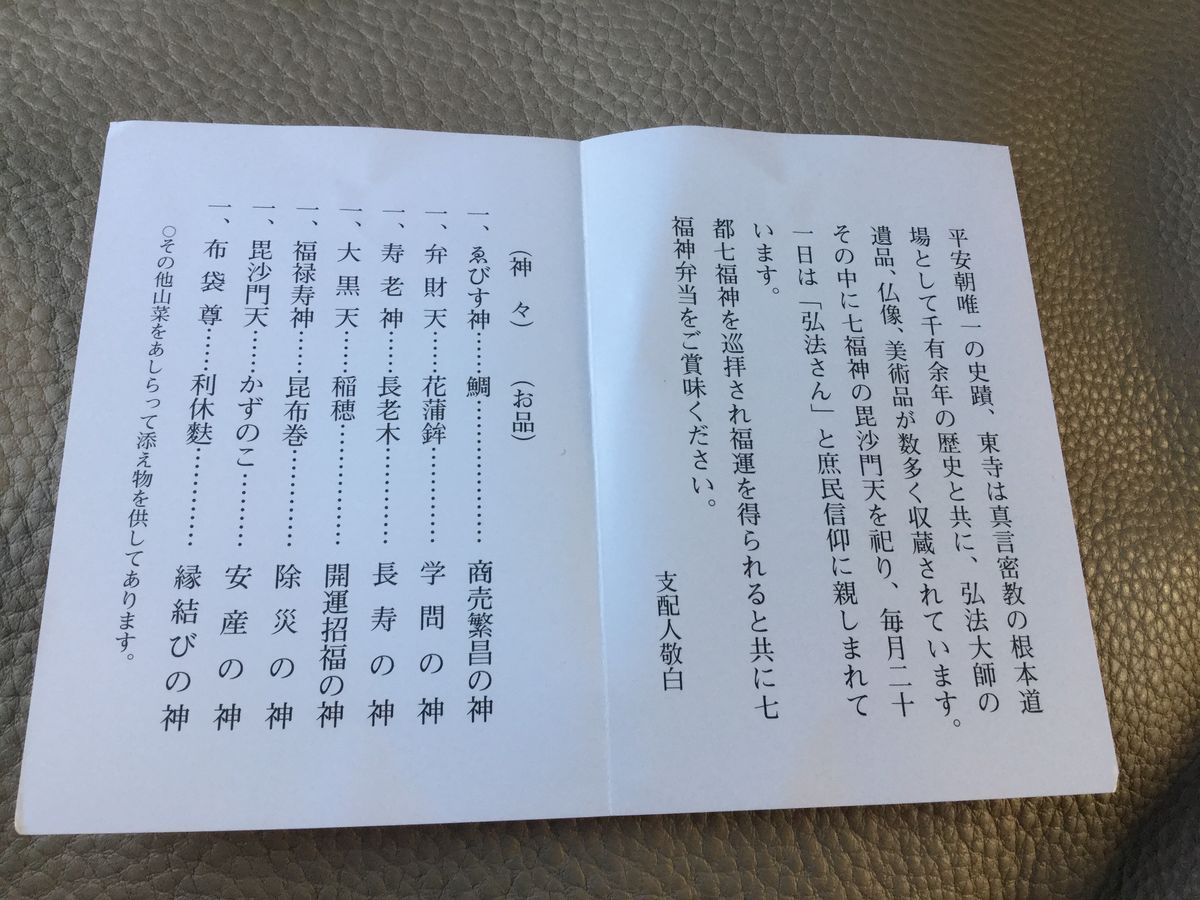 平安朝唯一の史蹟、東寺は真言密教の根本道
場として千有余年の歴史と共に、弘法大師の
遺品、仏像、美術品が数多く収蔵されています。
その中に七福神の毘沙門天を祀り、毎月二十
一日は「弘法さん」と庶民信仰に親しまれて
います。
都七福神を巡拝され福運を得られると共に七
福神弁当をご賞味ください。
支配人敬白
(神々) (お品)
一、ゑびす神……鯛………………商売繁昌の神
一、弁財天……花蒲鉾…………学問の神
一、寿老神……長老木…………長寿の神
一、大黒天……稲穂……………開運招福の神
一、福禄寿神……昆布巻…………除災の神
一、毘沙門天……かずのこ………安産の神
一、布袋尊……利休麩…………縁結びの神
○その他山菜をあしらって添え物を供してあります。